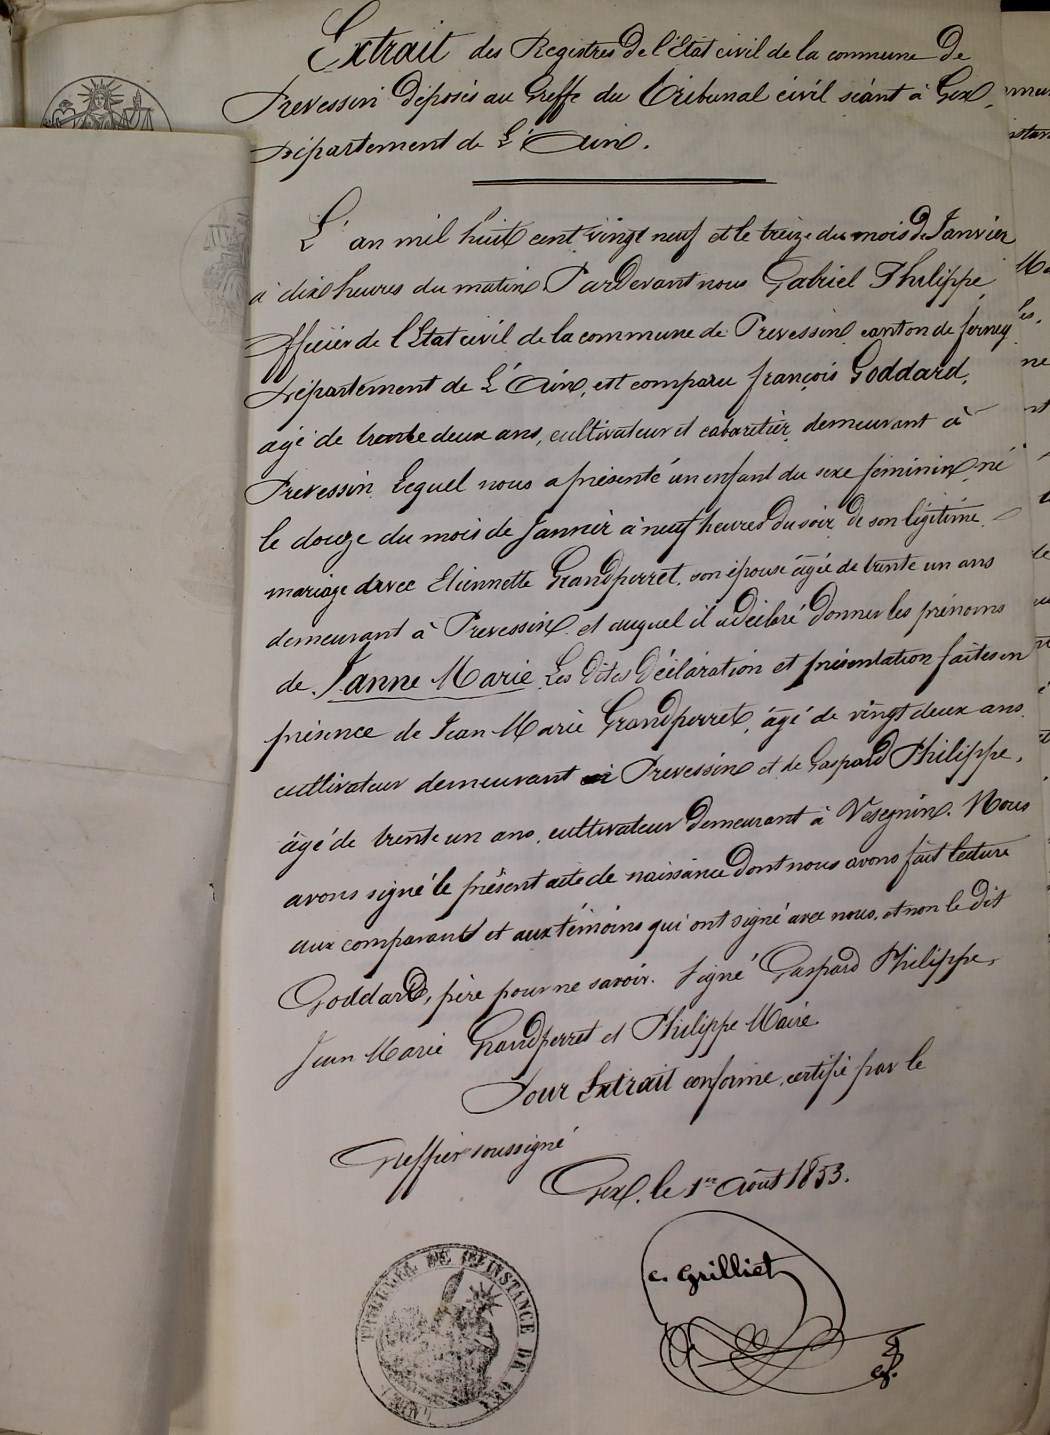 Extrait des Registres de l'État civil de la commune de
Prevessin déposés au Greffe du Tribunal civil séant à Gex,
Département de L'Ain.
L'an mil huit cent vingt neuf et le treize du mois de Janvier
à dix heures du matin Pardevant nous Gabriel Philippe,
Officier de l'Etat civil de la commune de Prevessin canton de ferney
Département de L'Ain, est comparu françois Goddard,
agé de trente deux ans, cultivateur et cabaretier, demeurant à
Prevessin lequel nous a présenté un enfant du sexe féminin né
le douze du mois de Janvier à neuf heures du soir de son légitime
mariage avec Etiennette Grandperret, son épouse âgée de trente un ans
demeurant à Prevessin et auquel il a déclaré donner les prénoms
de Janne Marie Les dites Déclaration et présentation faites en
présence de Jean Marie Grandperret, âgé de vingt deux ans
cultivateur demeurant à Prevessin et de Gaspard Philippe,
âgé de trente un ans, cultivateur demeurant à Vesegnin. Nous
avons signé le présent acte de naissance dont nous avons fait lecture
aux comparant et aux témoins qui ont signé avec nous, et non le dit
Goddard, père pour ne savoir. Signé Gaspard Philippe,
Jean Marie Grandperret et Philippe Maire.
Pour Extrait conforme, certifié par le
Greffier soussigné
Gex, le 1er Août 1853.
C. Grilliet
TRIBUNAL DE 1re INSTANCE DE GEX